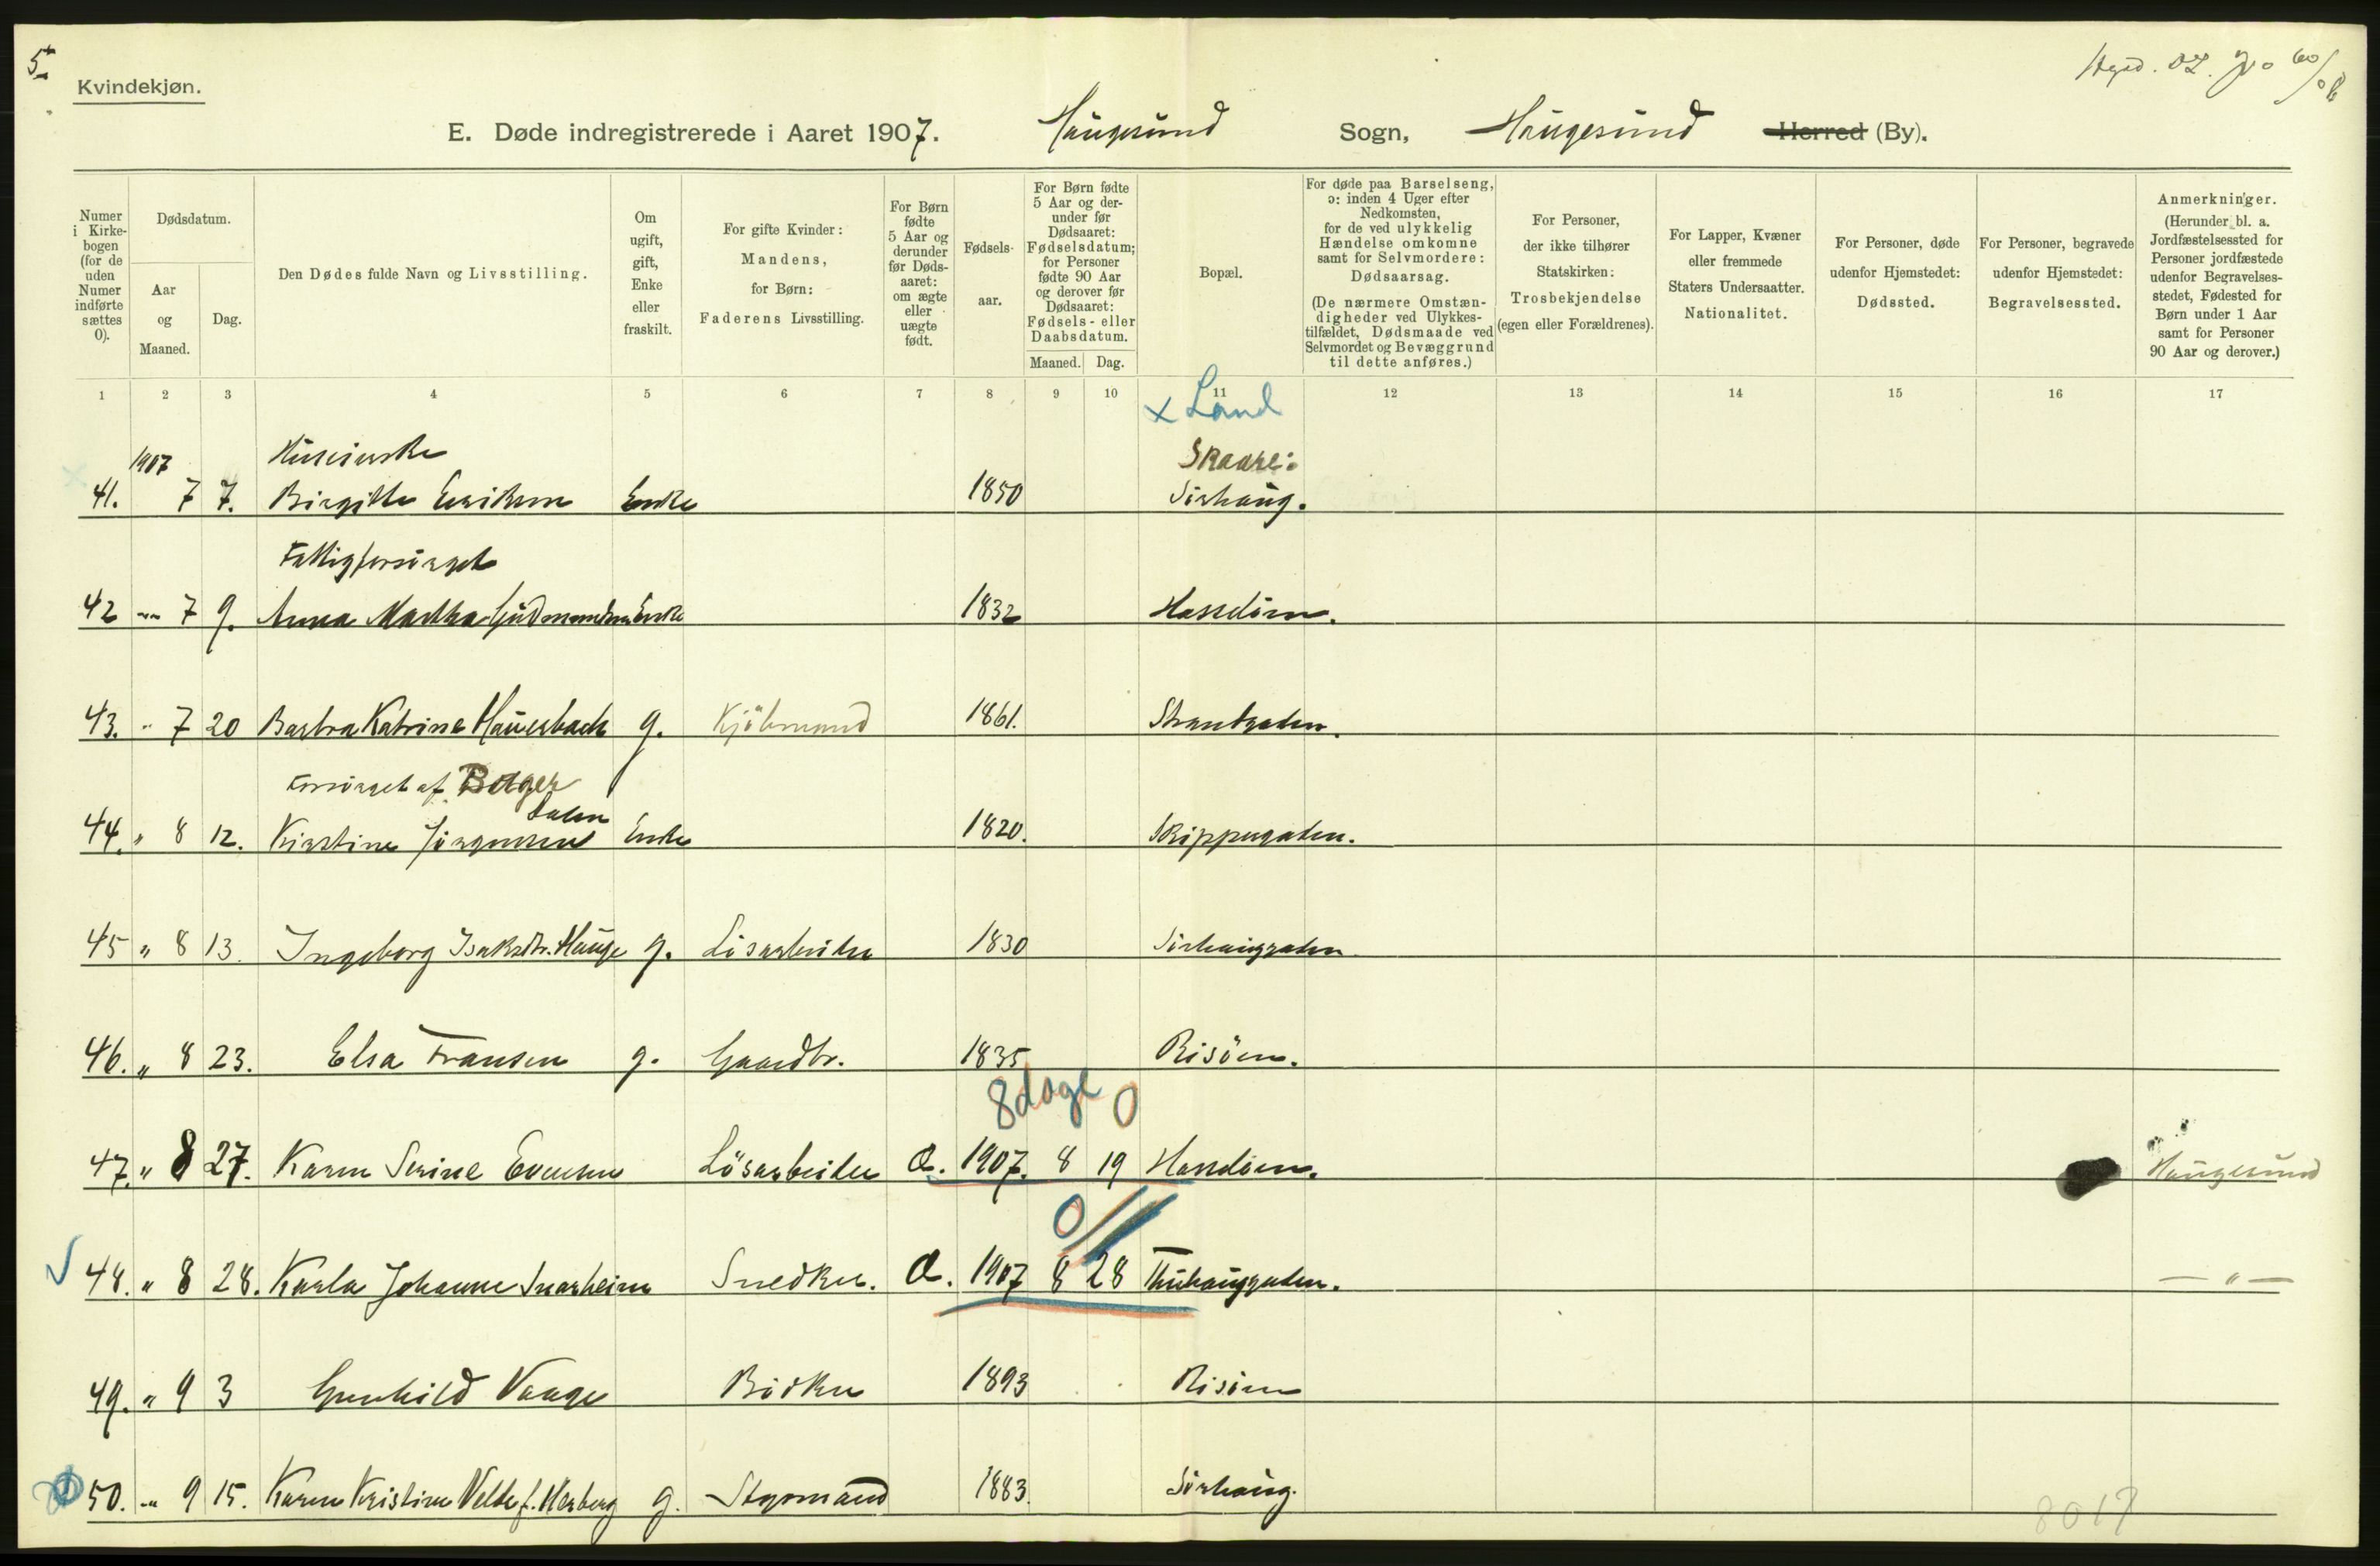 5
Kvindekjøn.
E. Døde indregistrerede i Aaret 1907. Haugesund Sogn, Haugesund Herred (By).
Numer i Kirkebogen (for de uden Numer indførte sættes 0).
Dødsdatum.
Aar og Maaned.
Dag.
Den Dødes fulde Navn og Livsstilling.
Om ugift, gift, Enke eller fraskilt.
For gifte Kvinder: Mandens, for Børn: Faderens Livsstilling.
For Børn fødte 5 Aar og derunder før Dødsaaret: om ægte eller uægte født.
Fødselsaar.
For Børn fødte 5 Aar og derunder før Dødsaaret: Fødselsdatum; for Personer fødte 90 Aar og derover før Dødsaaret: Fødsels- eller Daabsdatum.
Maaned. Dag.
Bopæl.
For døde paa Barselseng, ɔ: inden 4 Uger efter Nedkomsten, for de ved ulykkelig Hændelse omkomne samt for Selvmordere: Dødsaarsag.
(De nærmere Omstændigheder ved Ulykkestilfældet, Dødsmaade ved Selvmordet og Bevæggrund til dette anføres.)
For Personer, der ikke tilhører Statskirken: Trosbekjendelse (egen eller Forældrenes).
For Lapper, Kvæner eller fremmede Staters Undersaatter. Nationalitet.
For Personer, døde udenfor Hjemstedet: Dødssted.
For Personer, begravede udenfor Hjemstedet: Begravelsessted.
Anmerkninger.
(Herunder bl. a. Jordfæstelsessted for Personer jordfæstede udenfor Begravelsesstedet, Fødested for Børn under 1 Aar samt for Personer 90 Aar og derover.)
1 2 3 4 5 6 7 8 9 10 11 12 13 14 15 16 17
x Land
1907 Skaare:
41. 7 7. Birgitte Eriksen Enke 1850 Sørhaug.
Fattigforsørget
42 " 7 9. Anna Martha Gudmundsen Enke 1832 Hasseløen.
43. " 7 20 Barbra Katrine Hauerbach g. Kjøbmand 1861. Strandgaden.
Forsørget af Bolger
44. " 8 12. Kirstine Jørgensen Enke 1820. Skippergaden.
45 " 8 13. Ingeborg Isaksdtr. Hauge g. Løsarbeider 1830 Sørhauggaden
46. " 8 23. Elsa Fransen g. Gaardbr. 1835 Risöen.
8 dage 0
47. " 8 27. Karen Serine Evensen Lösarbeider Æ. 1907. 8 19 Hasseløen. Haugesund
0
48. " 8 28. Karla Johanne Snarheim Snedker. Æ. 1907 8 28 Thuhauggaden. — " —
49. " 9 3 Gunhild Vaage Bødker 1893 Risøen
50. " 9 15. Karen Kristine Velde f. Herberg g. Styrmand 1883. Sørhaug.
8017